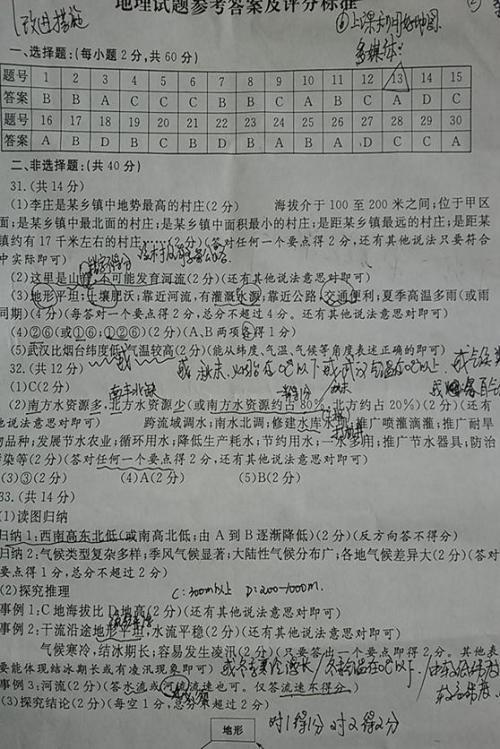 地理试题参考答案及评分标准
改进措施
①上课利用好地图
多媒体
②
一、选择题:(每小题2分,共60分)
题号 1 2 3 4 5 6 7 8 9 10 11 12 13 14 15
答案 B B A C C C B B C A B C A D C
题号 16 17 18 19 20 21 22 23 24 25 26 27 28 29 30
答案 A B D B C B D C A B A D C C A
二、非选择题:(共40分)
31.(共14分)
(1)李庄是某乡镇中地势最高的村庄(2分) 海拔介于100至200米之间;位于甲区
面;是某乡镇中最北面的村庄;是某乡镇中面积最小的村庄;是距某乡镇最远的村庄;是距某
镇约有17千米左右的村庄 (2分)(答对任何一个要点得2分,还有其他说法只要符合
中实际即可)
(2)这里是山脊,不可能发育河流(2分)(还有其他说法意思对即可)
(3)地形平坦;土壤肥沃;靠近河流,有灌溉水源;靠近公路,交通便利;夏季高温多雨(或雨
同期)(4分)(每答对一个要点得2分,总分不超过4分。还有其他说法意思对即可)
(4)②⑥(或①⑥;①②⑥)(2分)(A、B两项各得1分)
(5)武汉比烟台纬度低,气温较高(2分)(能从纬度、气温、气候等角度表述正确的即可)
32.(共12分)
(1)C(2分)
南丰北缺
(2)南方水资源多,北方水资源少(或南方水资源约占80%,北方约占20%)(2分)(还有
他说法意思对即可) 跨流域调水;南水北调;修建水库 推广喷灌滴灌;推广耐旱
物品种;发展节水农业;循环用水;降低生产耗水;节约用水;一水多用;推广节水器具;防治
染等(2分)(答对任何一个要点得2分,还有其他说法意思对即可)
(3)③(2分) (4)A(2分) (5)B(2分)
33.(共14分)
(1)读图归纳
归纳1:西南高东北低(或南高北低;由A到B逐渐降低)(2分)(反方向答不得分)
归纳2:气候类型复杂多样;季风气候显著;大陆性气候分布广;各地气候差异大(2分)(答对
要点得1分,总分不超过2分)
(2)探究推理 C:300m以上 D:200-1000m
事例1:C地海拔比D地高(2分)(还有其他说法意思对即可)
事例2:干流沿途地形平坦,水流平稳(2分)(还有其他说法意思对即可)
气候寒冷,结冰期长;容易发生凌汛(2分)(只要答出一个要点即得2分。其他表
要能体现结冰期长或有凌汛现象即可)
事例3:河流(2分)(答水流或河流流速也可。仅答流速不得分。)
(3)探究结论(2分)(每空1分,总分不超过2分)
对1得1分 对2得2分
地形